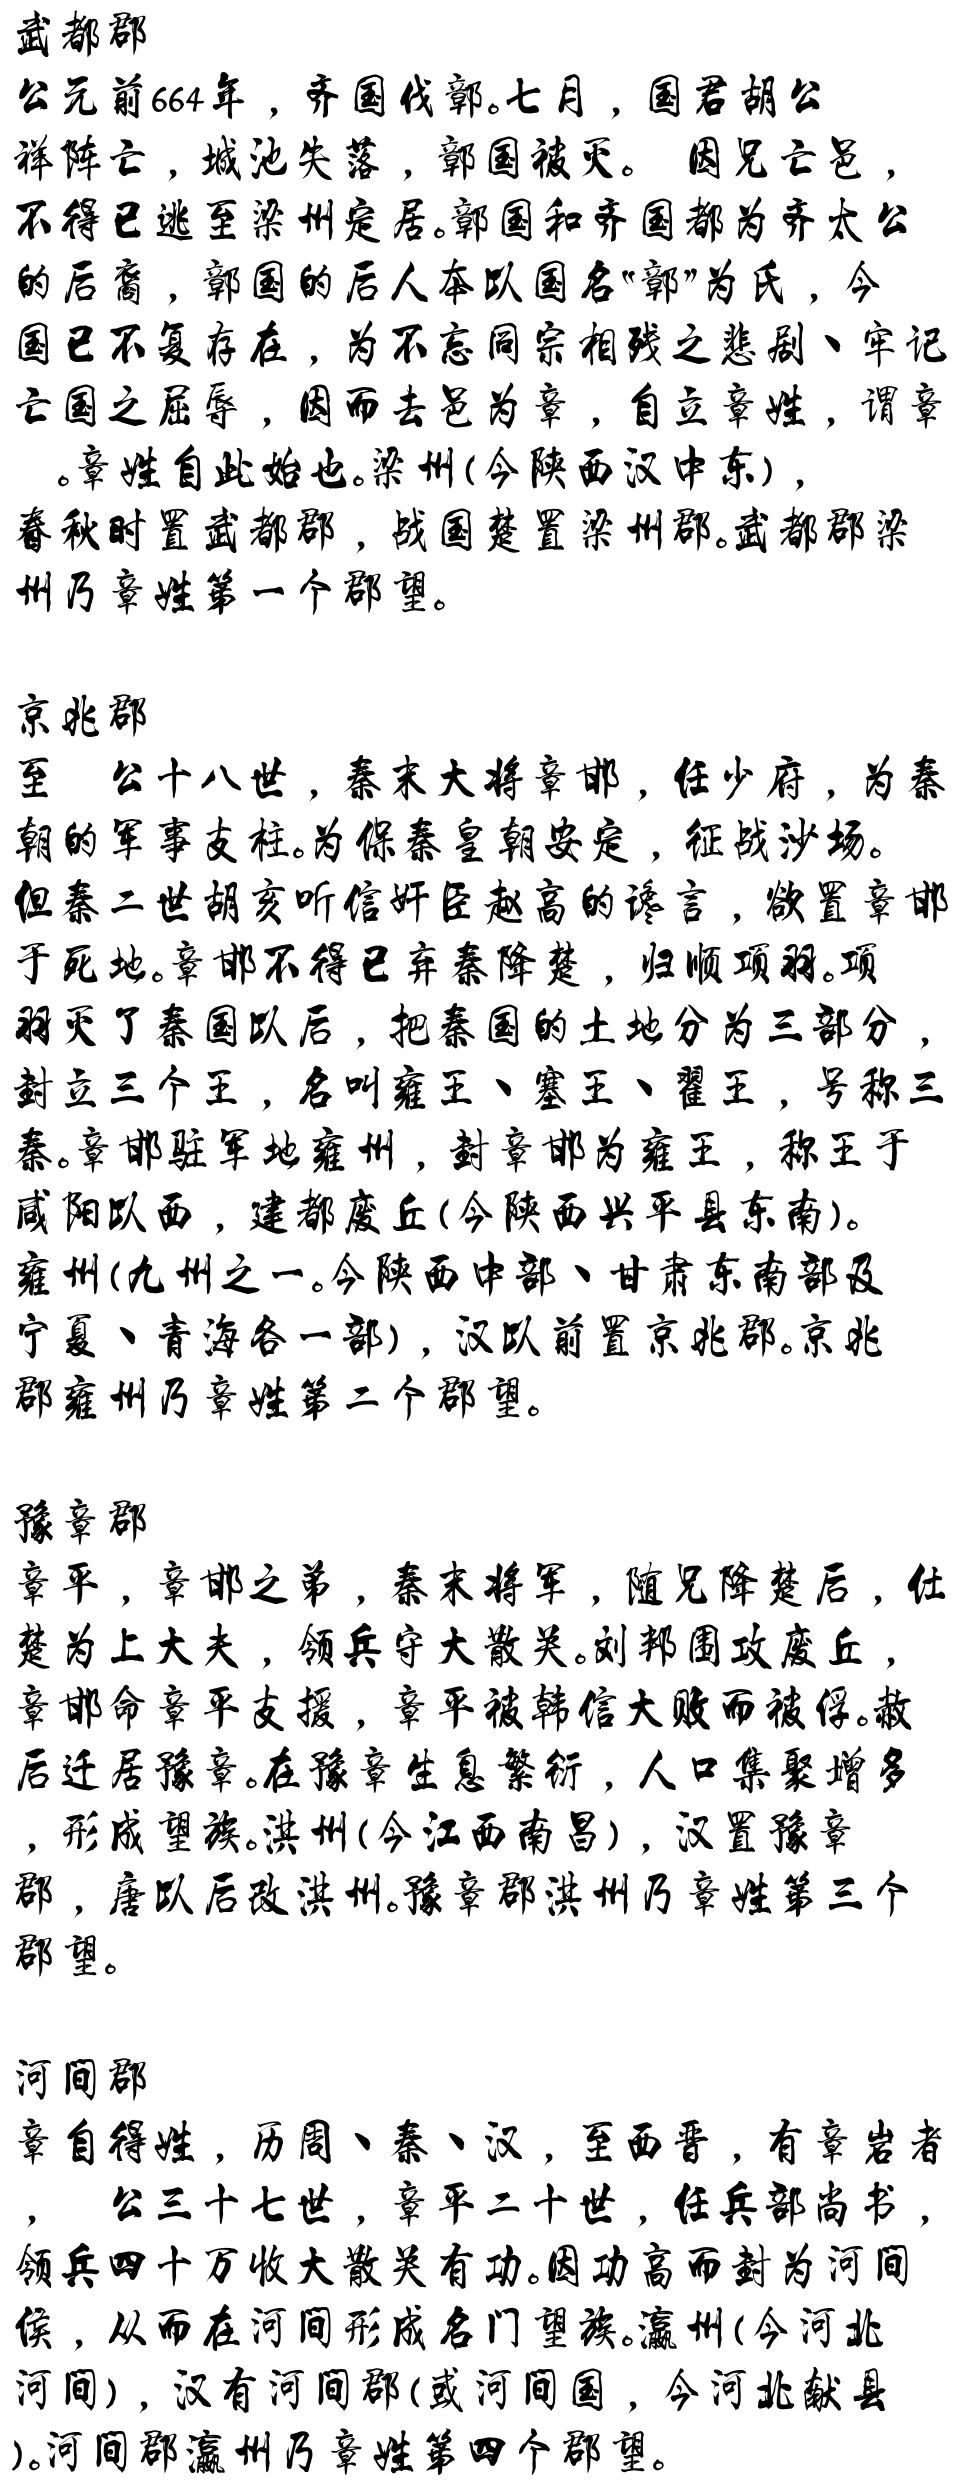 武都郡
公元前664年，齐国伐鄣。七月，国君胡公
祥阵亡，城池失落，鄣国被灭。 因兄亡邑，
不得已逃至梁州定居。鄣国和齐国都为齐太公
的后裔，鄣国的后人本以国名“鄣”为氏，今
国已不复存在，为不忘同宗相残之悲剧、牢记
亡国之屈辱，因而去邑为章，自立章姓，谓章
。章姓自此始也。梁州(今陕西汉中东)，
春秋时置武都郡，战国楚置梁州郡。武都郡梁
州乃章姓第一个郡望。
京兆郡
至 公十八世，秦末大将章邯，任少府，为秦
朝的军事支柱。为保秦皇朝安定，征战沙场。
但秦二世胡亥听信奸臣赵高的谗言，欲置章邯
于死地。章邯不得已弃秦降楚，归顺项羽。项
羽灭了秦国以后，把秦国的土地分为三部分，
封立三个王，名叫雍王、塞王、翟王，号称三
秦。章邯驻军地雍州，封章邯为雍王，称王于
咸阳以西，建都废丘(今陕西兴平县东南)。
雍州(九州之一。今陕西中部、甘肃东南部及
宁夏、青海各一部)，汉以前置京兆郡。京兆
郡雍州乃章姓第二个郡望。
豫章郡
章平，章邯之弟，秦末将军，随兄降楚后，仕
楚为上大夫，领兵守大散关。刘邦围攻废丘，
章邯命章平支援，章平被韩信大败而被俘。赦
后迁居豫章。在豫章生息繁衍，人口集聚增多
，形成望族。洪州(今江西南昌)，汉置豫章
郡，唐以后改洪州。豫章郡洪州乃章姓第三个
郡望。
河间郡
章自得姓，历周、秦、汉，至西晋，有章岩者
， 公三十七世，章平二十世，任兵部尚书，
领兵四十万收大散关有功。因功高而封为河间
侯，从而在河间形成名门望族。瀛州(今河北
河间)，汉有河间郡(或河间国，今河北献县
)。河间郡瀛州乃章姓第四个郡望。